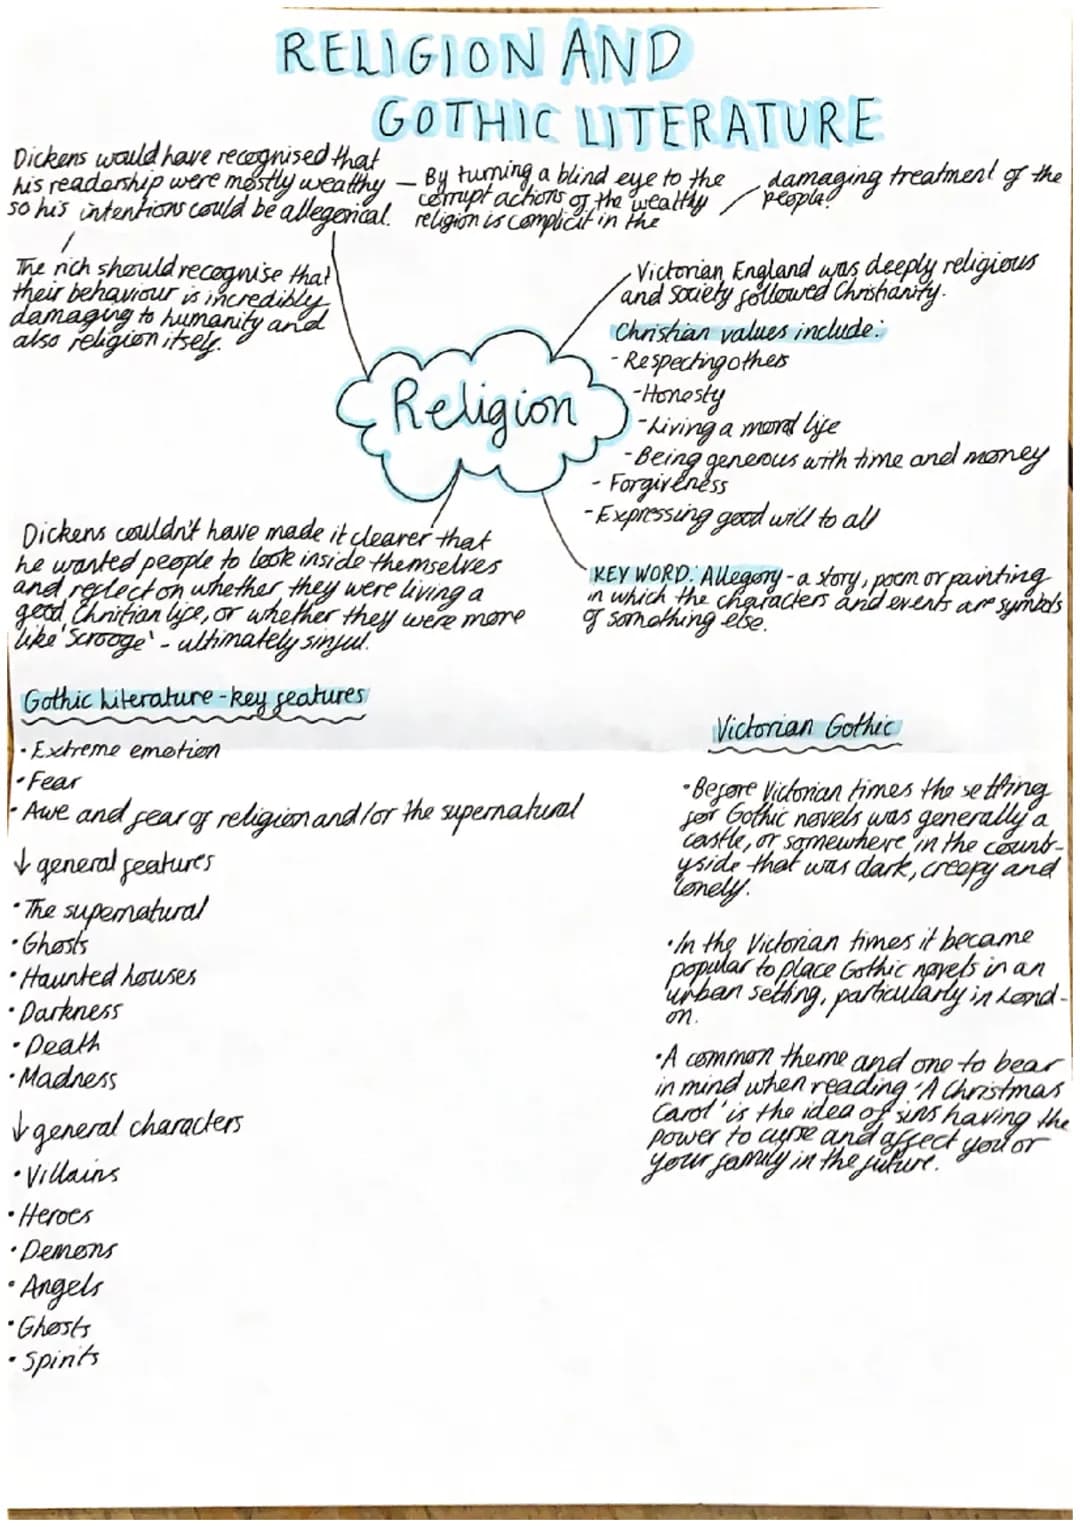 RELIGION AND
GOTHIC LITERATURE
Dickens would have recognised that
his readership were mostly wealthy
so his intentions could be allegorical.
By turning a blind eye to the
corrupt actions of the wealthy
religion is complicit in the
damaging treatment of the
people.
The rich should recognise that
their behaviour is incredibly
damaging to humanity and
also religion itself.
Victorian England was deeply religious
and society followed Christianity.
Christian values include:
- Respecting others
- Honesty
- Living a moral life
- Being generous with time and money
- Forgiveness
- Expressing good will to all
Religion
Dickens couldn't have made it clearer that
he wanted people to look inside themselves
and reflect on whether they were living a
good Christian life, or whether they were more
like 'Scrooge' - ultimately sinful.
KEY WORD: Allegory - a story, poem or painting
in which the characters and events are symbols
of something else.
Gothic Literature - key features
• Extreme emotion
• Fear
• Awe and fear of religion and/or the supernatural
↓ general features
• The supernatural
• Ghosts
• Haunted houses
• Darkness
• Death
• Madness
↓ general characters
• Villains
• Heroes
• Demons
• Angels
• Ghosts
• Spirits
Victorian Gothic
• Before Victorian times the setting
for Gothic novels was generally a
castle, or somewhere in the countr-
yside that was dark, creepy and
lonely.
• In the Victorian times it became
popular to place Gothic novels in an
urban setting, particularly in Lond-
on.
• A common theme and one to bear
in mind when reading 'A Christmas
Carol' is the idea of sins having the
power to curse and affect you or
your family in the future.